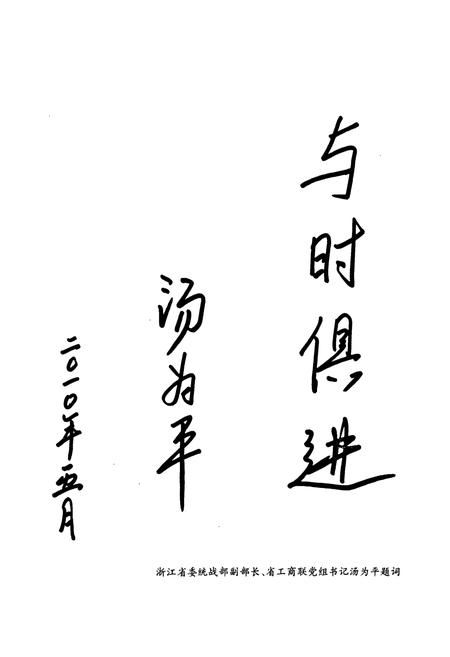 与时俱进
汤为平
二〇一〇年五月
浙江省委统战部副部长、省工商联党组书记汤为平题词